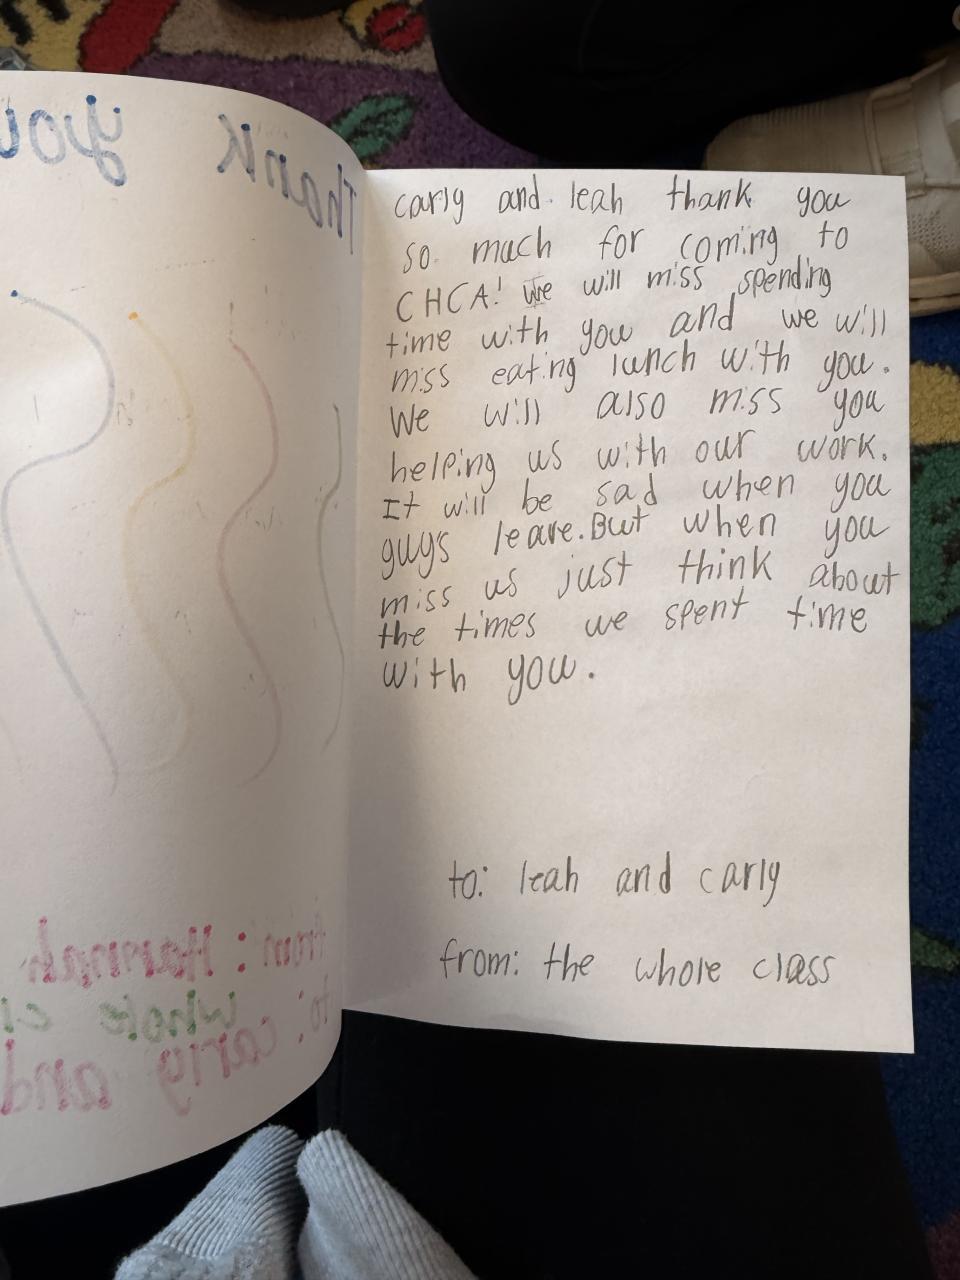 Thank you
from: Hannah
whole cl
to: carly and
carly and leah thank you
so much for coming to
CHCA! We will miss spending
time with you and we will
miss eating lunch with you.
We will also miss you
helping us with our work.
It will be sad when you
guy's leave. But when you
miss us just think about
the times we spent time
with you.
to: leah and carly
from: the whole class